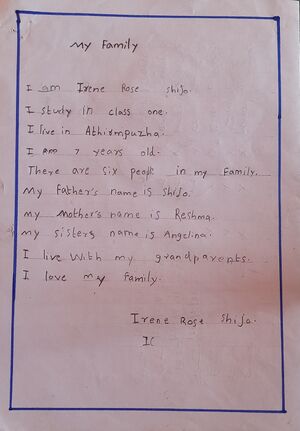 My Family
I am Irene Rose Shijo.
I study in class one.
I live in Athirmpuzha.
I am 7 years old.
There are six people in my family.
My Father's name is Shijo.
my Mother's name is Reshma.
my sisters name is Angelina.
I live with my grandparents.
I love my family.
Irene Rose Shijo.
IC